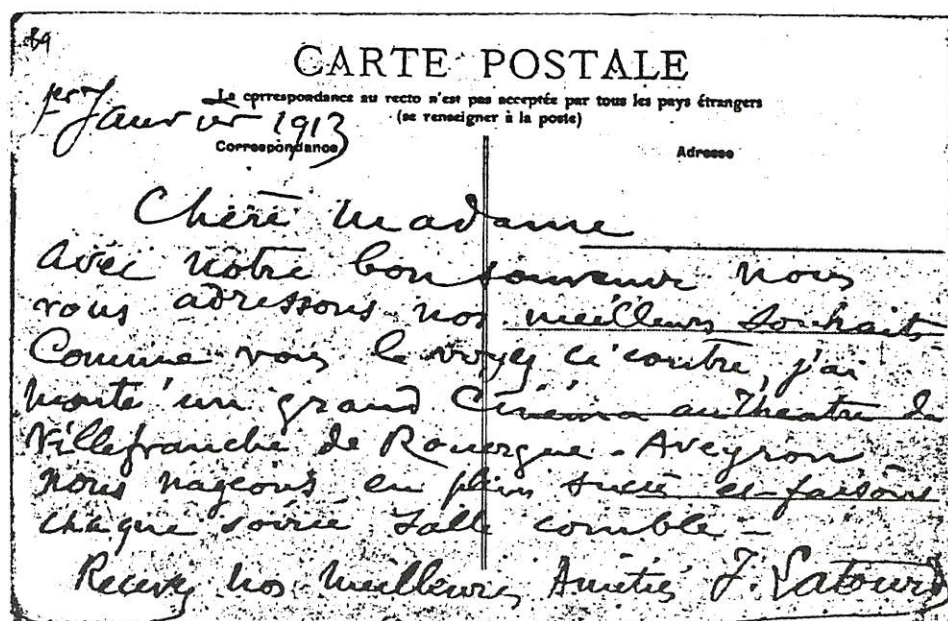 89
CARTE POSTALE
La correspondance au recto n'est pas acceptée par tous les pays étrangers
(se renseigner à la poste)
1er Janvier 1913
Correspondance
Adresse
Chère Madame
avec notre bon souvenir nous
vous adressons nos meilleurs souhaits
Comme vous le voyez ci contre, j'ai
monté un grand Cinéma au Theatre de
Villefranche de Rouergue - Aveyron
nous nageons en plein succès et faisons
chaque soirée salle comble -
Recevez nos meilleures Amitiés J. Latour